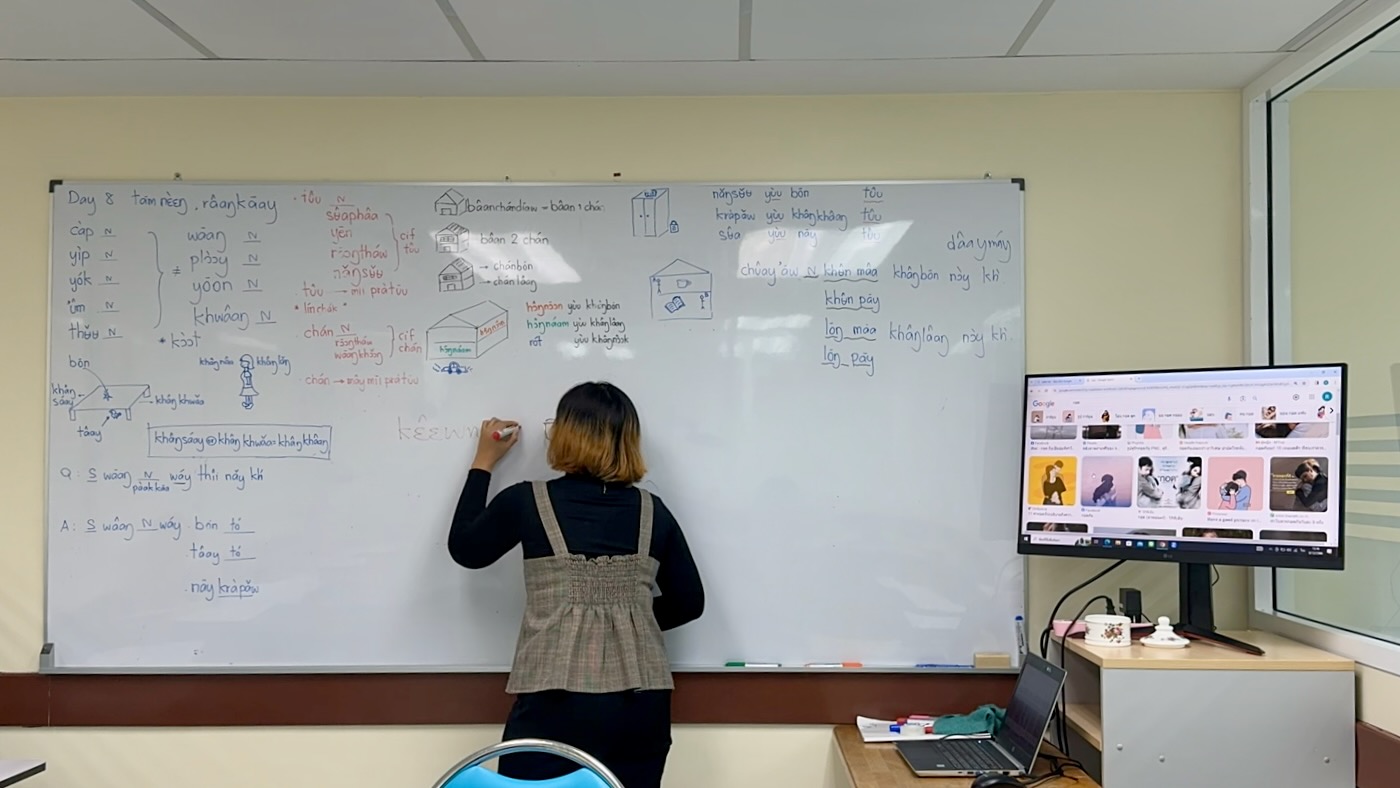 Day 8 tamnèɛŋ , râaŋkaay
càp N
yìp N
yók N
ʼûm N
thʉ̌ʉ N
≠
waaŋ N
plɔ̀ɔy N
yoon N
khwâaŋ N
* kɔ̀ɔt
bon
khâŋ sáay
khâŋ khwǎa
tâay
khâŋnâa
khâŋlǎŋ
khâŋsáay ↔ khâŋ khwǎa khâŋkhâaŋ
Q : S waaŋ N wáy thîi nǎy khá
A : S waaŋ N wáy bon tó
tâay tó
nay kràpǎw
· tûu N
sʉ̂aphâa
yen
rɔɔŋtháw
nǎŋsʉ̌ʉ
clf tûu
· tûu → mii pratuu
* línchák *
chán N
rɔɔŋtháw
waaŋkhɔ̌ɔŋ
clf chán
· chán → mây mii pratuu
bâanchándiaw = bâan 1 chán
bâan 2 chán
→ chánbon
→ chánlâaŋ
hɔ̂ŋnɔɔn
hɔ̂ŋnáam
hɔ̂ŋnɔɔn yùu khâŋbon
hɔ̂ŋnáam yùu khâŋlâaŋ
rót yùu khâŋnɔ̂ɔk
kɛ̂ɛw
nǎŋsʉ̌ʉ yùu bon tûu
kràpǎw yùu khâŋkhâaŋ tûu
sʉ̂a yùu nay tûu
dâaymáy
chûayʼaw N khʉ̂n maa khâŋbon nɔ̀y khá
khʉ̂n pay
loŋ maa khâŋlâaŋ nɔ̀y khá
loŋ pay
Google